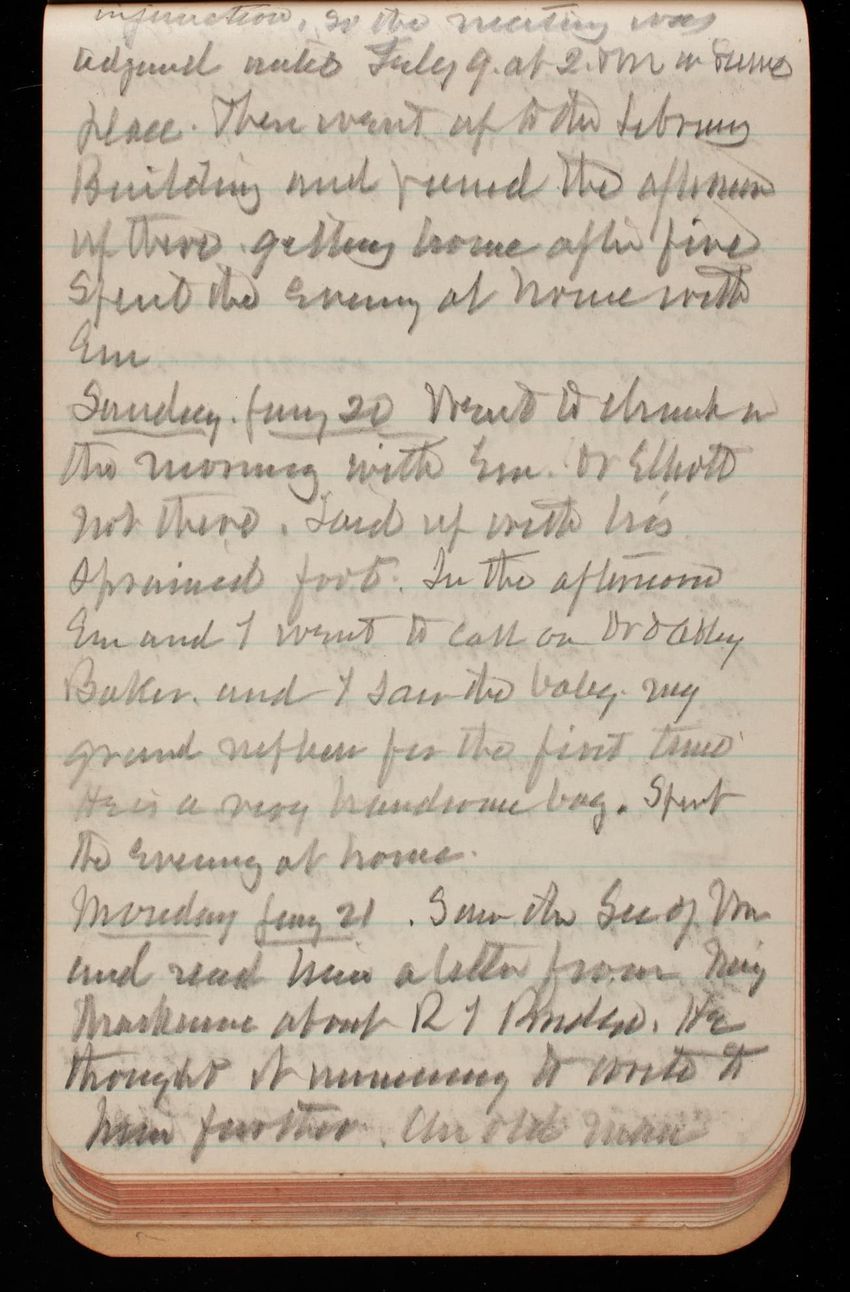 information, so the meeting was
adjourned until Feby 9. at 2. PM in same
place. Then went up to the Library
Building and passed the afternoon
up there. getting home after five
Spent the Evening at home with
Em
Sunday. Jany 20 Went to church in
the morning with Em. Dr Elliott
not there. Laid up with his
sprained foot. In the afternoon
Em and I went to call on Dr &
Baker. and I saw the baby. my
grand nephew for the first time
He is a very handsome boy. Spent
the Evening at home.
Monday Jany 21. Saw the Sec of War
and read him a letter from
about R I Bridge. He
thought it unnecessary to write to
him further. An old man